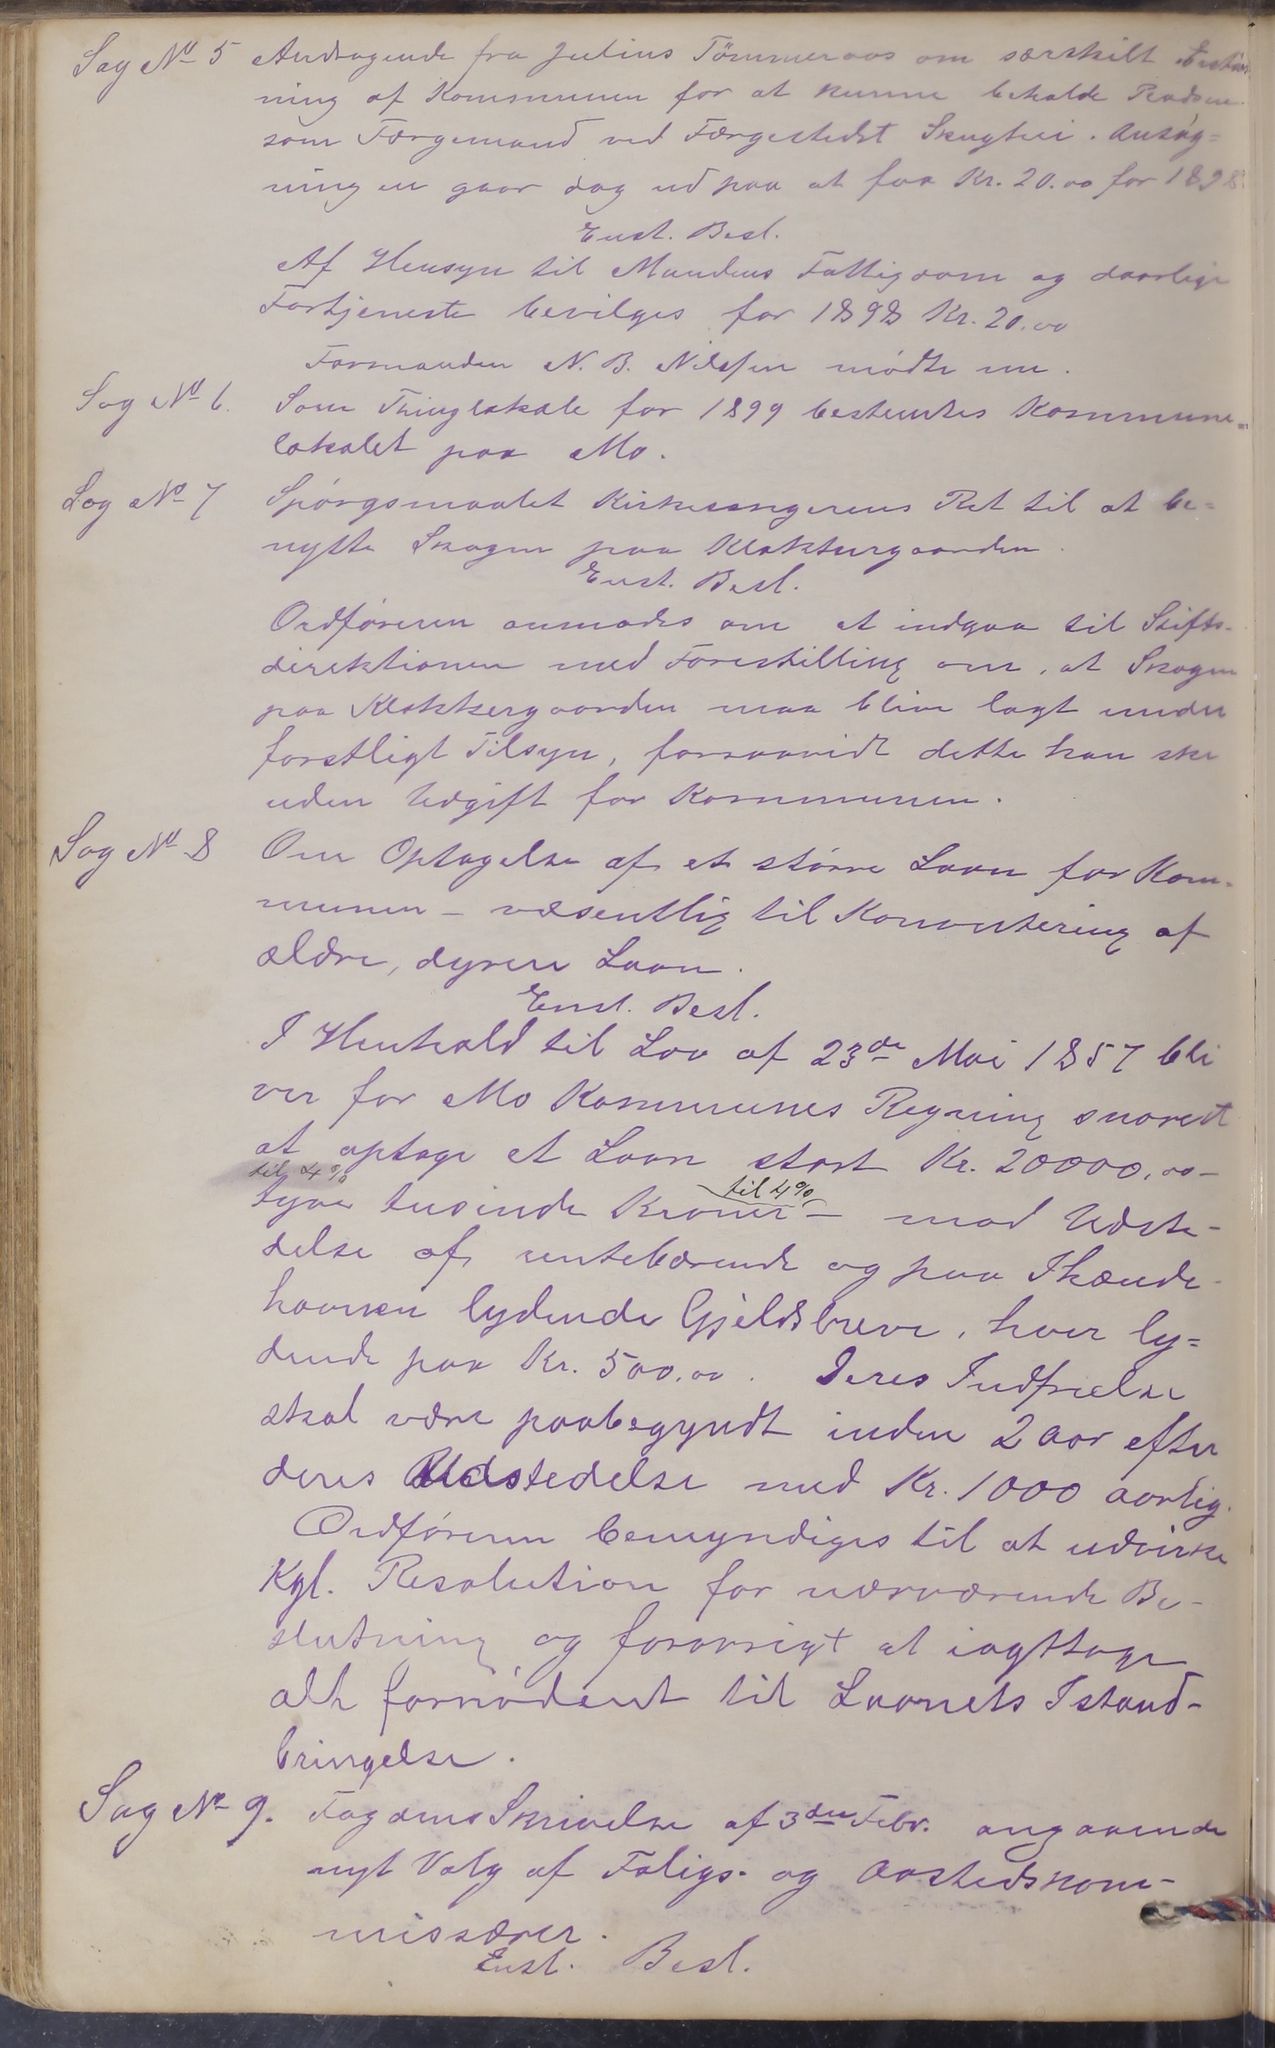 Sag No 5 Andragende fra Julius Tömmeraas om særskilt
ning af Kommunen for at kunne beholde
som Færgemand ved Færgestedet Ansøg-
ningen gaar dog ud paa at faa Kr. 20.00 for 1898
Enst. Besl.
Af Hensyn til Mandens Fattigdom og daarlige
Fortjeneste bevilges for 1898 Kr. 20.00
Formanden N. B. Nilssen mødte nu.
Sag No 6. Som Thinglokale for 1899 bestemtes Kommune-
lokalet paa Mo.
Sag No 7 Spörgsmaalet Kirkesangerens Ret til at be-
nytte Skogen paa Klokkergaarden.
Enst. Besl.
Ordføreren anmodes om at indgaa til Stifts-
direktionen med Forestilling om, at Skogen
paa Klokkergaarden maa blive lagt under
forstligt Tilsyn, forsaavidt dette kan ske
uden Udgift for Kommunen.
Sag No 8 Om Optagelse af et større Laan for Kom-
munen - væsentlig til Konvertering af
ældre, dyrere Laan.
Enst. Besl.
I Henhold til Lov af 23de Mai 1857 bli
ver for Mo Kommunes Regning
at optage et Laan stort Kr. 20000,00-
til 4% til 4%
tyve tusinde Kroner - mod Udste-
delse af rentebærende og paa Ihænde-
haveren lydende Gjeldsbreve, hver ly-
dende paa Kr. 500.00. Deres Indfrielse
skal være paabegyndt inden 2 aar efter
deres Udstedelse med Kr. 1000 aarlig.
Ordføreren bemyndiges til at udvirke
Kgl. Resolution for nærværende Be-
slutning og forøvrigt at iagttage
alt fornødent til Laanets Istand-
bringelse.
Sag No 9. Fogdens Skrivelse af 3die Febr. angaaende
nyt Valg af Forligs- og Aastedskom-
missærer.
Enst. Besl.